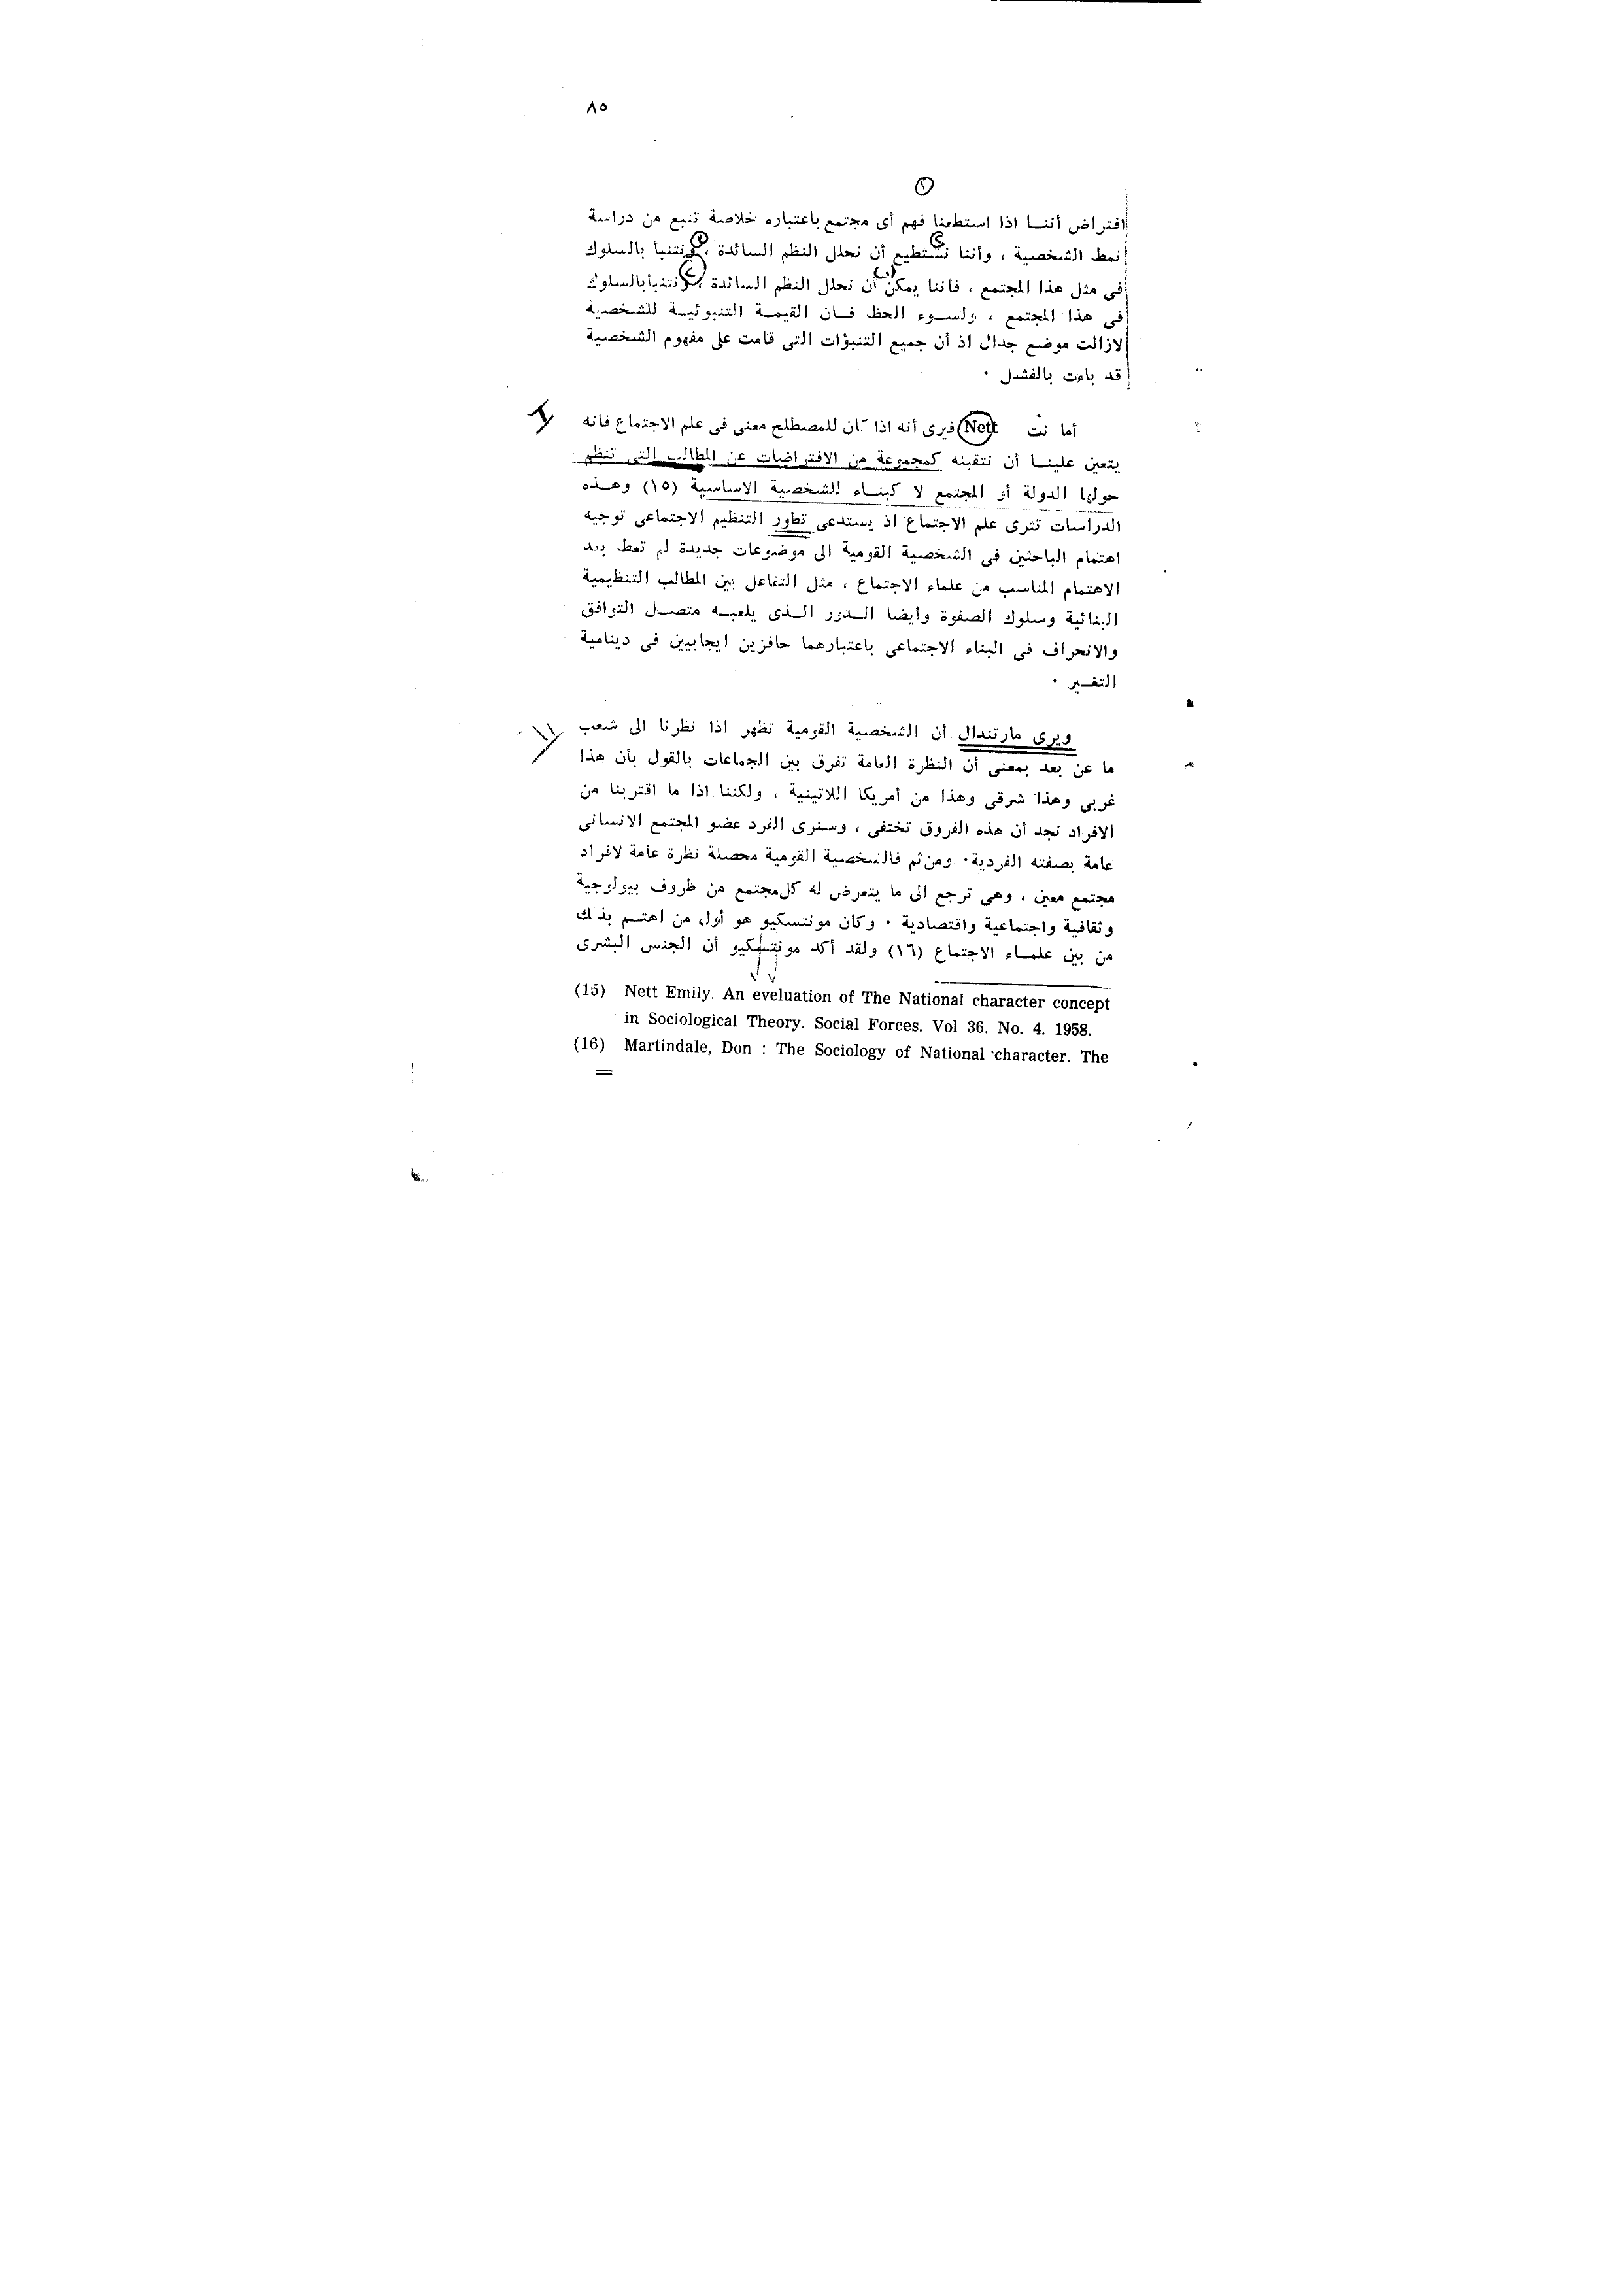 ٨٥
افتراض أننا اذا استطعنا فهم أى مجتمع باعتباره خلاصة تنبع من دراسة
نمط الشخصية ، وأننا نستطيع أن نحلل النظم السائدة ، ونتنبأ بالسلوك
فى مثل هذا المجتمع ، فاننا يمكن أن نحلل النظم السائدة ونتنبأ بالسلوك
فى هذا المجتمع ، ولسوء الحظ فان القيمة التنبوئية للشخصية
لازالت موضع جدال اذ أن جميع التنبؤات التى قامت على مفهوم الشخصية
قد باءت بالفشل .
أما نت Nett فيرى أنه اذا كان للمصطلح معنى فى علم الاجتماع فانه
يتعين علينا أن نتقبله كمجموعة من الافتراضات عن المطالب التى تنظم
حولها الدولة أو المجتمع لا كبناء للشخصية الاساسية (١٥) وهذه
الدراسات تثرى علم الاجتماع اذ يستدعى تطور التنظيم الاجتماعى توجيه
اهتمام الباحثين فى الشخصية القومية الى موضوعات جديدة لم تعط بعد
الاهتمام المناسب من علماء الاجتماع ، مثل التفاعل بين المطالب التنظيمية
البنائية وسلوك الصفوة وأيضا الدور الذى يلعبه متصل التوافق
والانحراف فى البناء الاجتماعى باعتبارهما حافزين ايجابيين فى دينامية
التغير .
ويرى مارتندال أن الشخصية القومية تظهر اذا نظرنا الى شعب
ما عن بعد بمعنى أن النظرة العامة تفرق بين الجماعات بالقول بأن هذا
غربى وهذا شرقى وهذا من أمريكا اللاتينية ، ولكننا اذا ما اقتربنا من
الافراد نجد أن هذه الفروق تختفى ، وسنرى الفرد عضو المجتمع الانسانى
عامة بصفته الفردية . ومن ثم فالشخصية القومية محصلة نظرة عامة لافراد
مجتمع معين ، وهى ترجع الى ما يتعرض له كل مجتمع من ظروف بيولوجية
وثقافية واجتماعية واقتصادية . وكان مونتسكيو هو أول من اهتم بذلك
من بين علماء الاجتماع (١٦) ولقد أكد مونتسكيو أن الجنس البشرى
(15) Nett Emily. An eveluation of The National character concept
in Sociological Theory. Social Forces. Vol 36. No. 4. 1958.
(16) Martindale, Don : The Sociology of National character. The
=